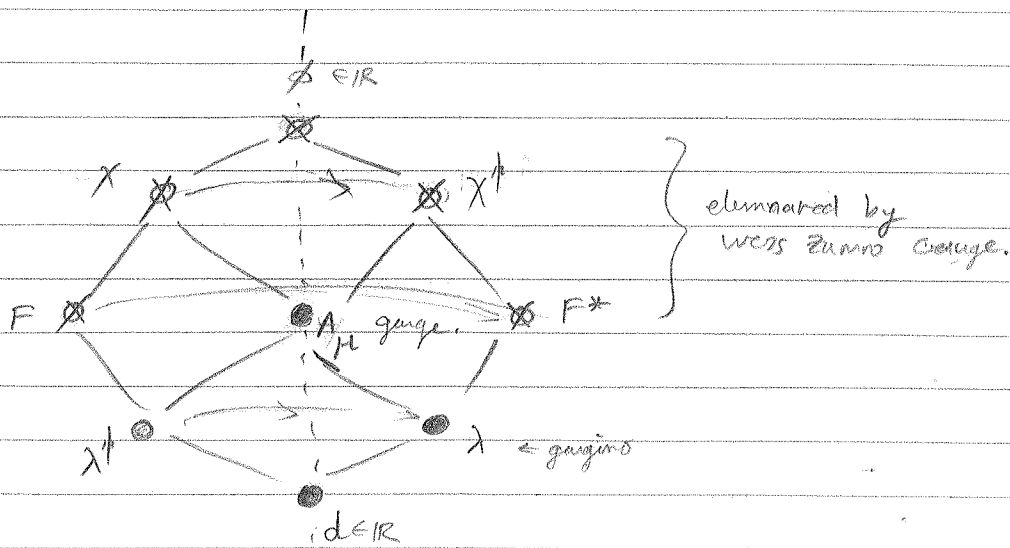 φ ∈ ℝ
χ χ†
elimnared by
wess zumno Gauge.
F Aμ gauge. F*
λ† λ ← gaugino
d ∈ ℝ